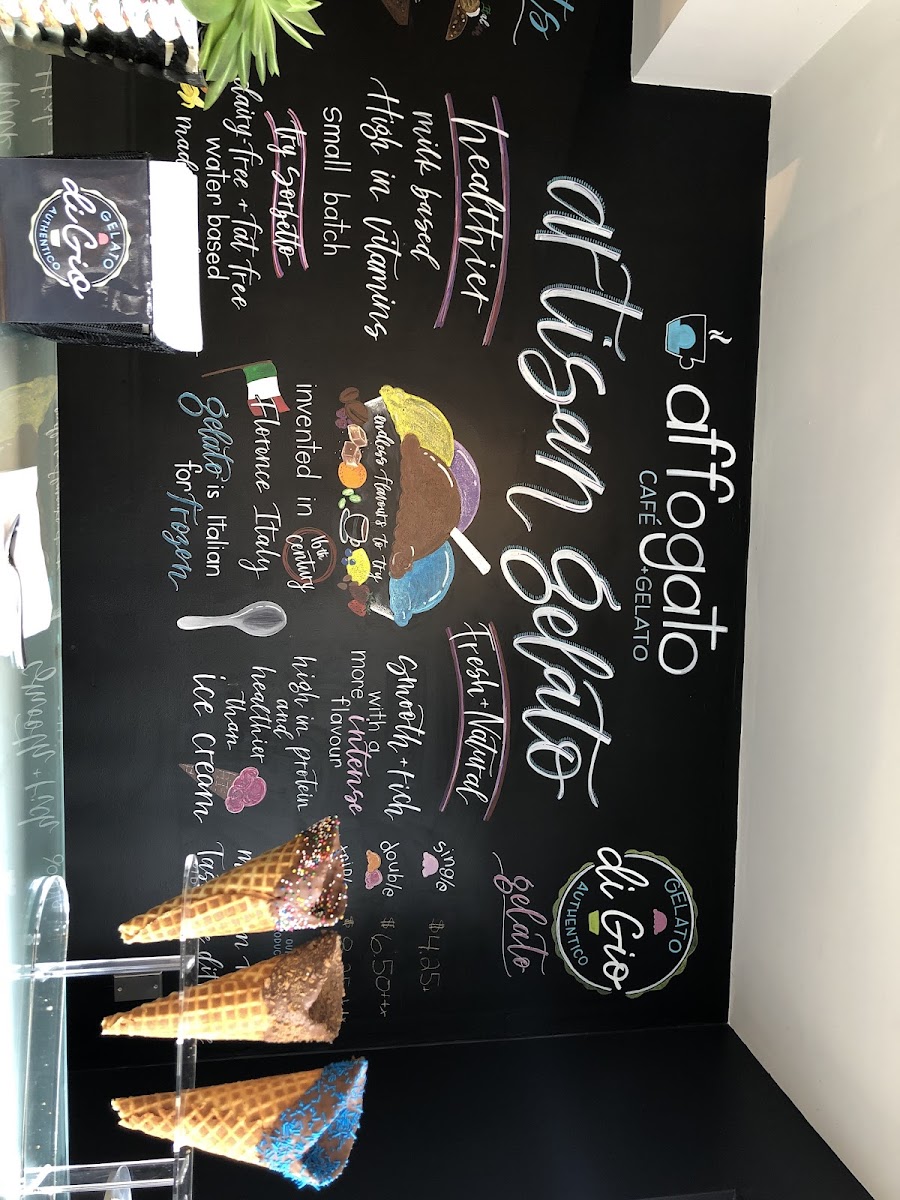 affogato
CAFÉ + GELATO
artisan gelato
healthier
milk based
High in Vitamins
small batch
try sorbetto
dairy free + fat free
water based
endless flavours to try
invented in 16th century
Florence Italy
gelato is Italian
for frozen
Fresh + Natural
Smooth + rich
with a
more intense
flavour
high in protein
and
healthier
than
ice cream
GELATO
di Gio
AUTHENTICO
gelato
single $4.25
double $6.50
GELATO
di Gio
AUTHENTICO